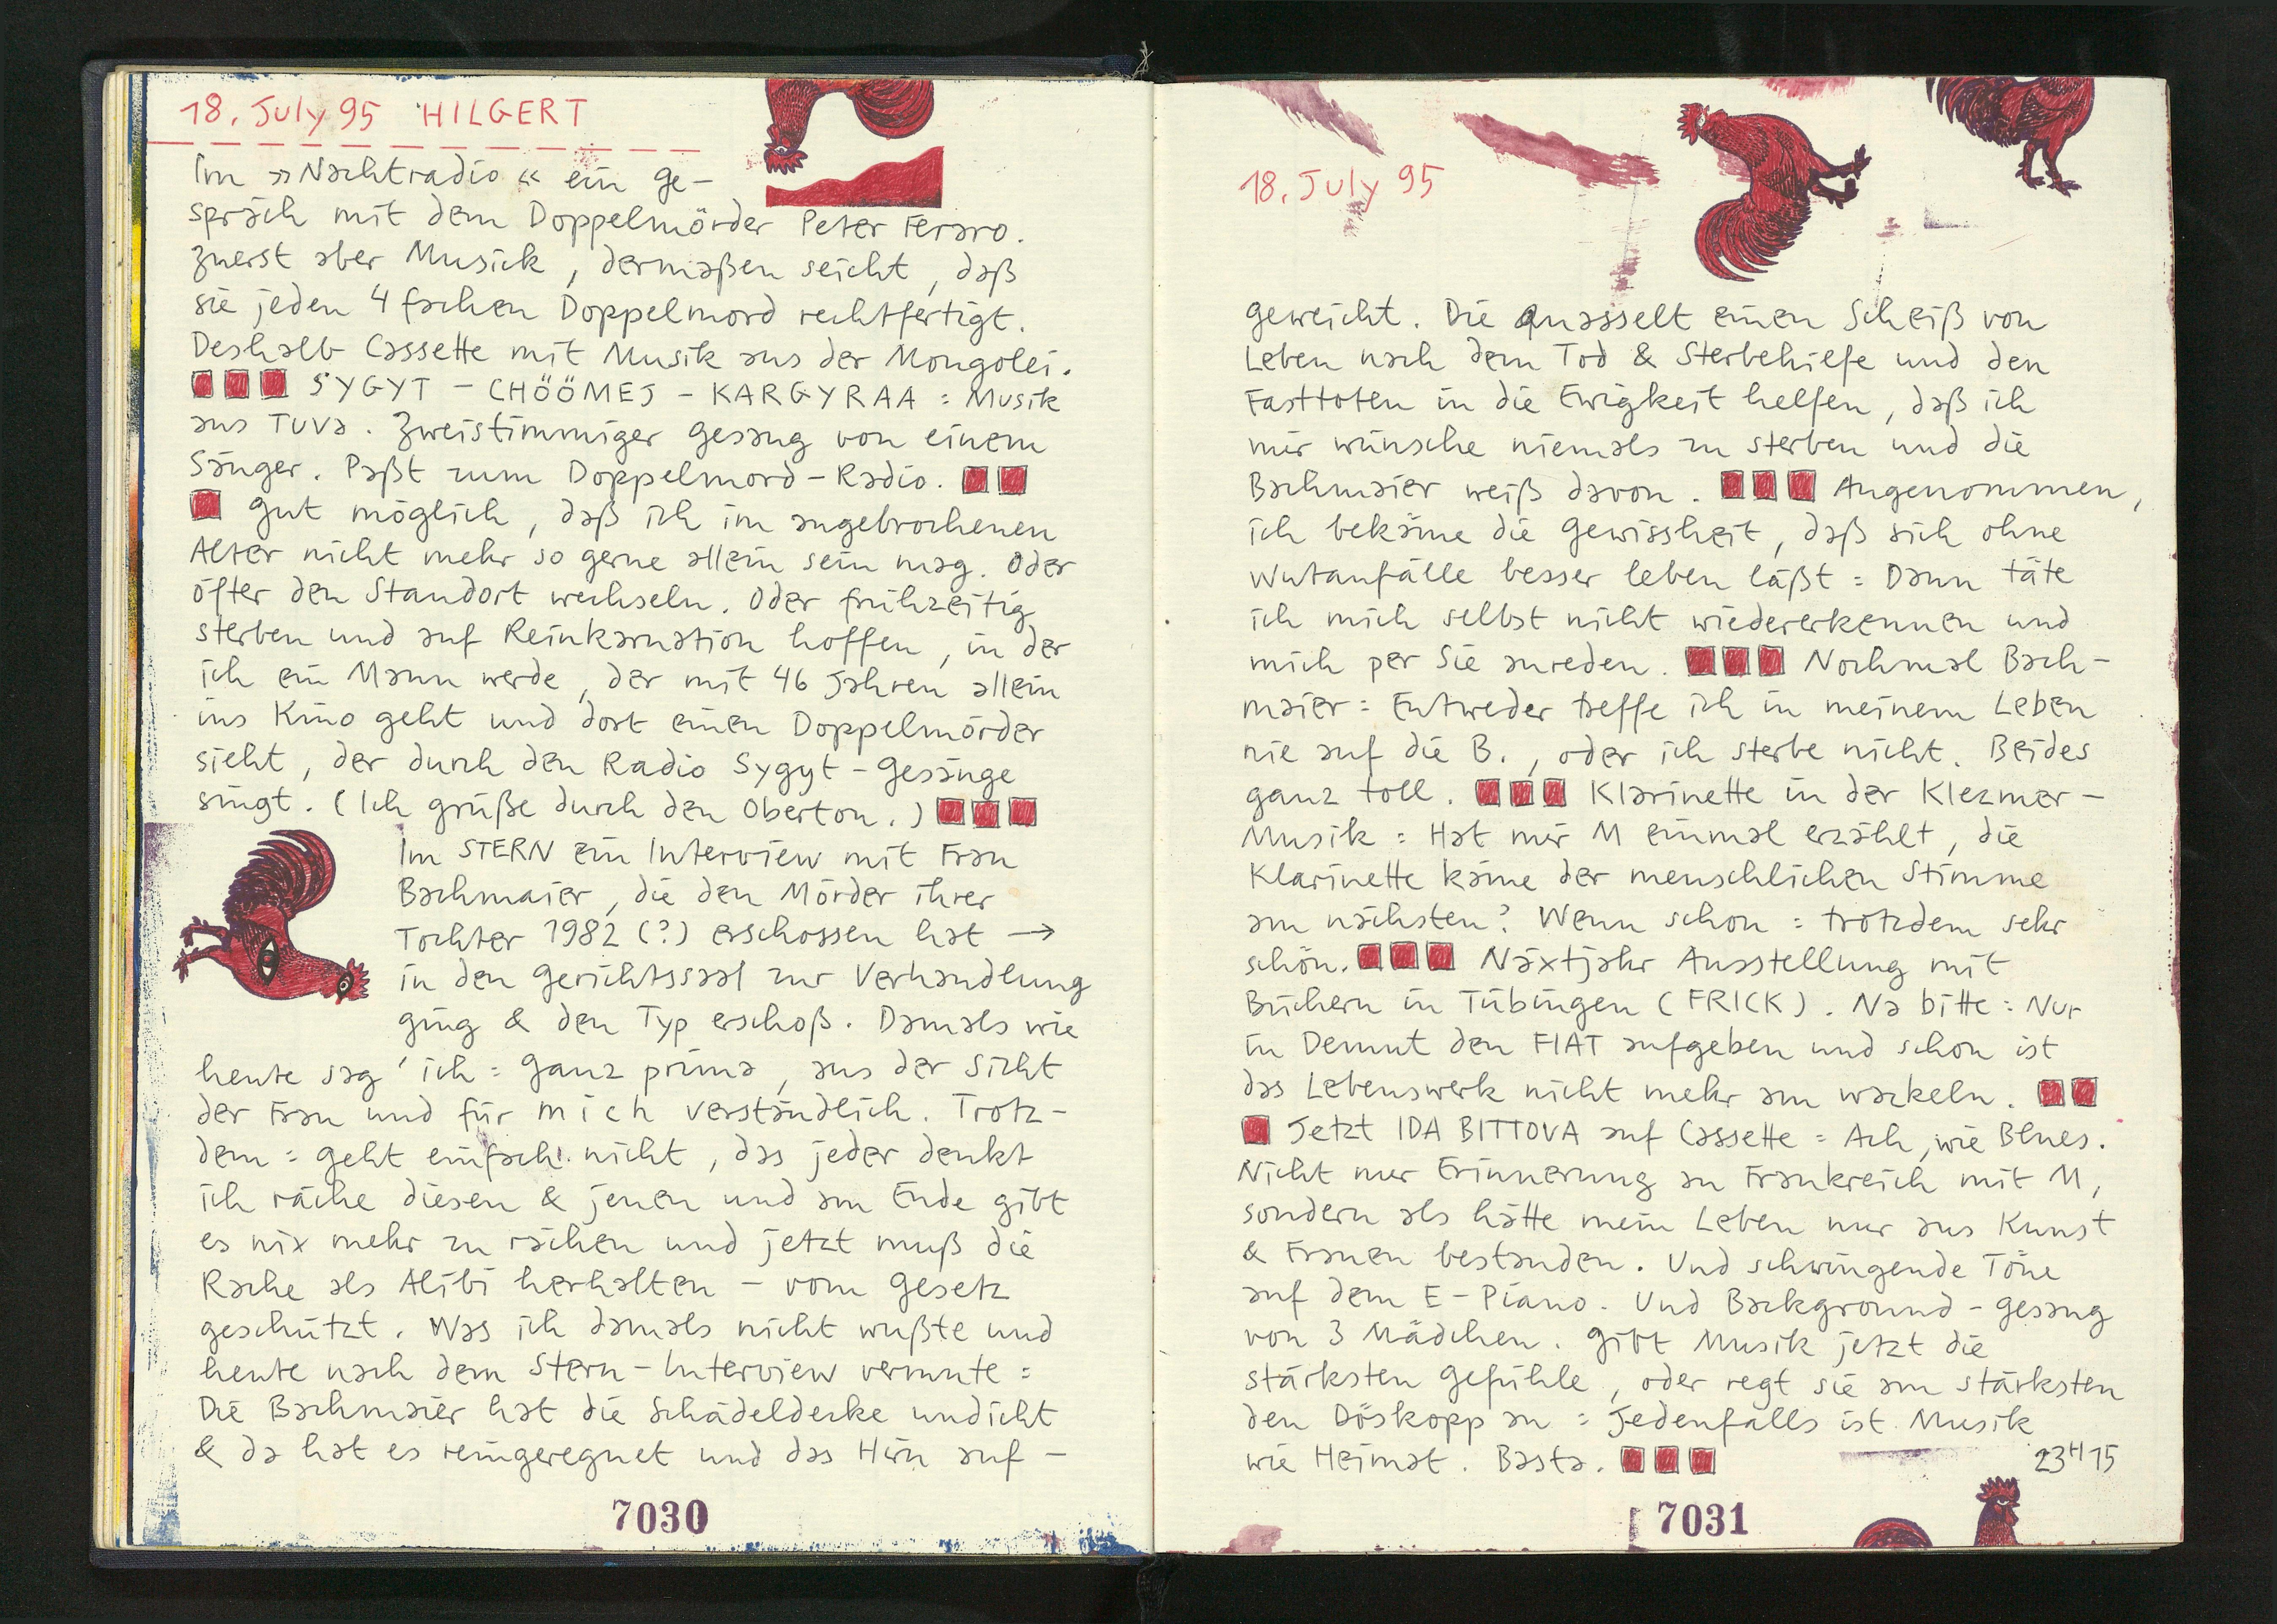 18. July 95 HILGERT
Im »Nachtradio« ein Ge-
spräch mit dem Doppelmörder Peter Feraro.
Zuerst aber Musick, dermaßen seicht, daß
sie jeden 4 fachen Doppelmord rechtfertigt.
Deshalb Cassette mit Musik aus der Mongolei.
SYGYT - CHÖÖMEJ - KARGYRAA = Musik
aus Tuva. Zweistimmiger Gesang von einem
Sänger. Paßt zum Doppelmord-Radio.
Gut möglich, daß ich im angebrochenen
Alter nicht mehr so gerne allein sein mag. Oder
öfter den Standort wechseln. Oder frühzeitig
sterben und auf Reinkarnation hoffen, in der
ich ein Mann werde, der mit 46 Jahren allein
ins Kino geht und dort einen Doppelmörder
sieht, der durch den Radio Sygyt-Gesänge
singt. (Ich grüße durch den Oberton.)
Im STERN ein Interview mit Frau
Bachmaier, die den Mörder ihrer
Tochter 1982 (?) erschossen hat →
in den Gerichtssaal zur Verhandlung
ging & den Typ erschoß. Damals wie
heute sag' ich = Ganz prima, aus der Sicht
der Frau und für mich verständlich. Trotz-
dem = Geht einfach nicht, das jeder denkt
ich räche diesen & jenen und am Ende gibt
es nix mehr zu rächen und jetzt muß die
Rache als Alibi herhalten - vom Gesetz
geschützt. Was ich damals nicht wußte und
heute nach dem Stern-Interview vermute =
Die Bachmaier hat die Schädeldecke undicht
& da hat es reingeregnet und das Hirn auf-
7030
18. July 95
geweicht. Die Quasselt einen Scheiß von
Leben nach dem Tod & Sterbehielfe und den
Fasttoten in die Ewigkeit helfen, daß ich
mir wünsche niemals zu sterben und die
Bachmaier weiß davon. Angenommen,
ich bekäme die Gewissheit, daß sich ohne
Wutanfälle besser leben läßt = Dann täte
ich mich selbst nicht wiedererkennen und
mich per Sie anreden. Nochmal Bach-
maier = Entweder treffe ich in meinem Leben
nie auf die B., oder ich sterbe nicht. Beides
ganz toll. Klarinette in der Klezmer-
Musik = Hat mir M einmal erzählt, die
Klarinette käme der menschlichen Stimme
am nächsten? Wenn schon = trotzdem sehr
schön. Näxtjahr Ausstellung mit
Büchern in Tübingen (FRICK). Na bitte = Nur
in Demut den FIAT aufgeben und schon ist
das Lebenswerk nicht mehr am wackeln.
Jetzt IDA BITTOVA auf Cassette = Ach, wie Blues.
Nicht nur Erinnerung an Frankreich mit M,
sondern als hätte mein Leben nur aus Kunst
& Frauen bestanden. Und schwingende Töne
auf dem E-Piano. Und Background-Gesang
von 3 Mädchen. Gibt Musik jetzt die
stärksten Gefühle, oder regt sie am stärksten
den Döskopp an = Jedenfalls ist Musik
wie Heimat. Basta. 23H15
7031